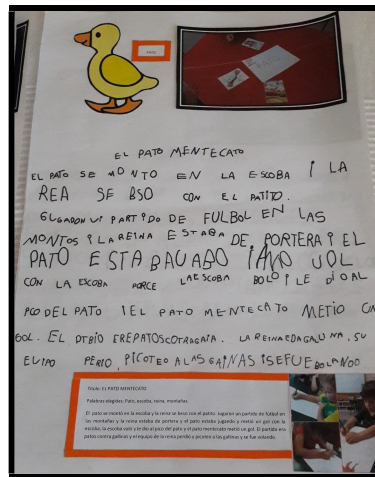 PATO
PATO
EL PATO MENTECATO
EL PATO SE MONTO EN LA ESCOBA I LA
REA SE BSO CON EL PATITO.
GUGARON UI PARTIDO DE FULBOL EN LAS
MONTOS I LA REINA ESTABA DE PORTERA I EL
PATO ESTABA UABO I AIO UOL
CON LA ESCOBA PORCE LA ESCOBA BOLO I LE DIO AL
PCO DEL PATO I EL PATO MENTECATO METIO UN
GOL. EL DTBIO ERE PATOS COTRAGAIA. LA REINA EDAGALUNA, SU
EUIPO PERIO, PICOTEO A LAS GAINAS I SE FUE BOLANDO
Título: EL PATO MENTECATO
Palabras elegidas: Pato, escoba, reina, montañas.
El pato se montó en la escoba y la reina se beso con el patito. Jugaron un partido de futbol en
las montañas y la reina estaba de portera y el pato estaba jugando y metió un gol con la
escoba, la escoba voló y le dio al pico del pato y el pato mentecato metió un gol. El partido era
patos contra gallinas y el equipo de la reina perdió y picoteo a las gallinas y se fue volando.